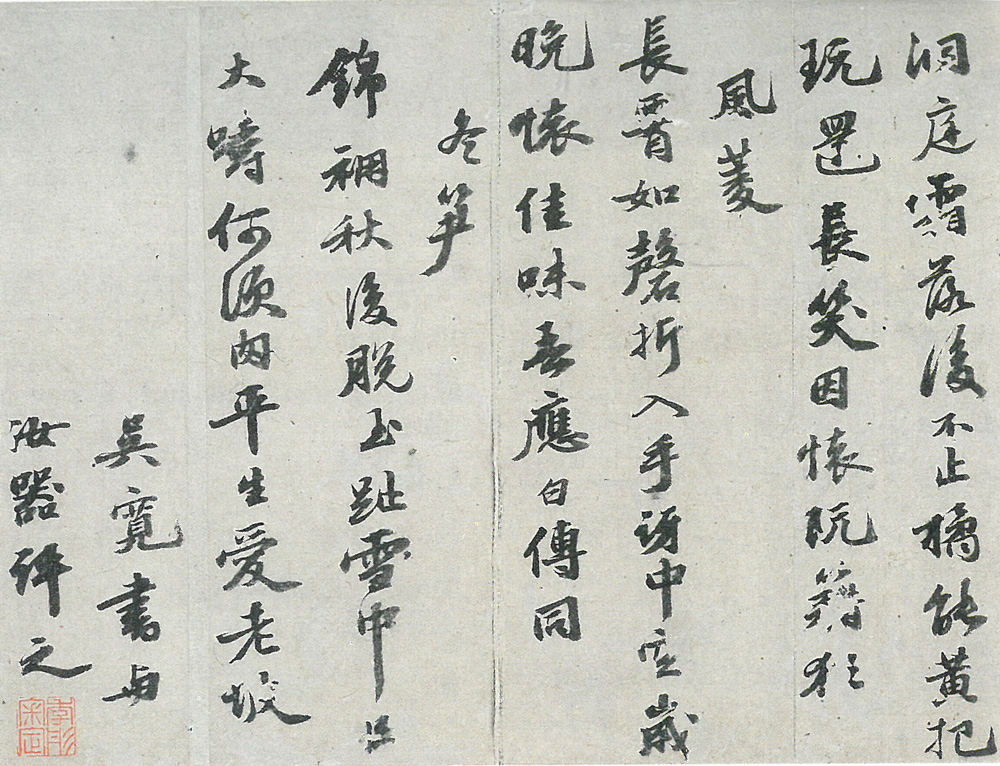 洞庭霜落後不止橘能黃把
玩還長笑因懷阮籍狂
風菱
長腰如磬折入手訝中空歲
晚懷佳味吾應白傳同
冬笋
錦裯秋後脫玉趾雪中
大嚼何須肉平生愛老坡
吳寬書與
汝器評之